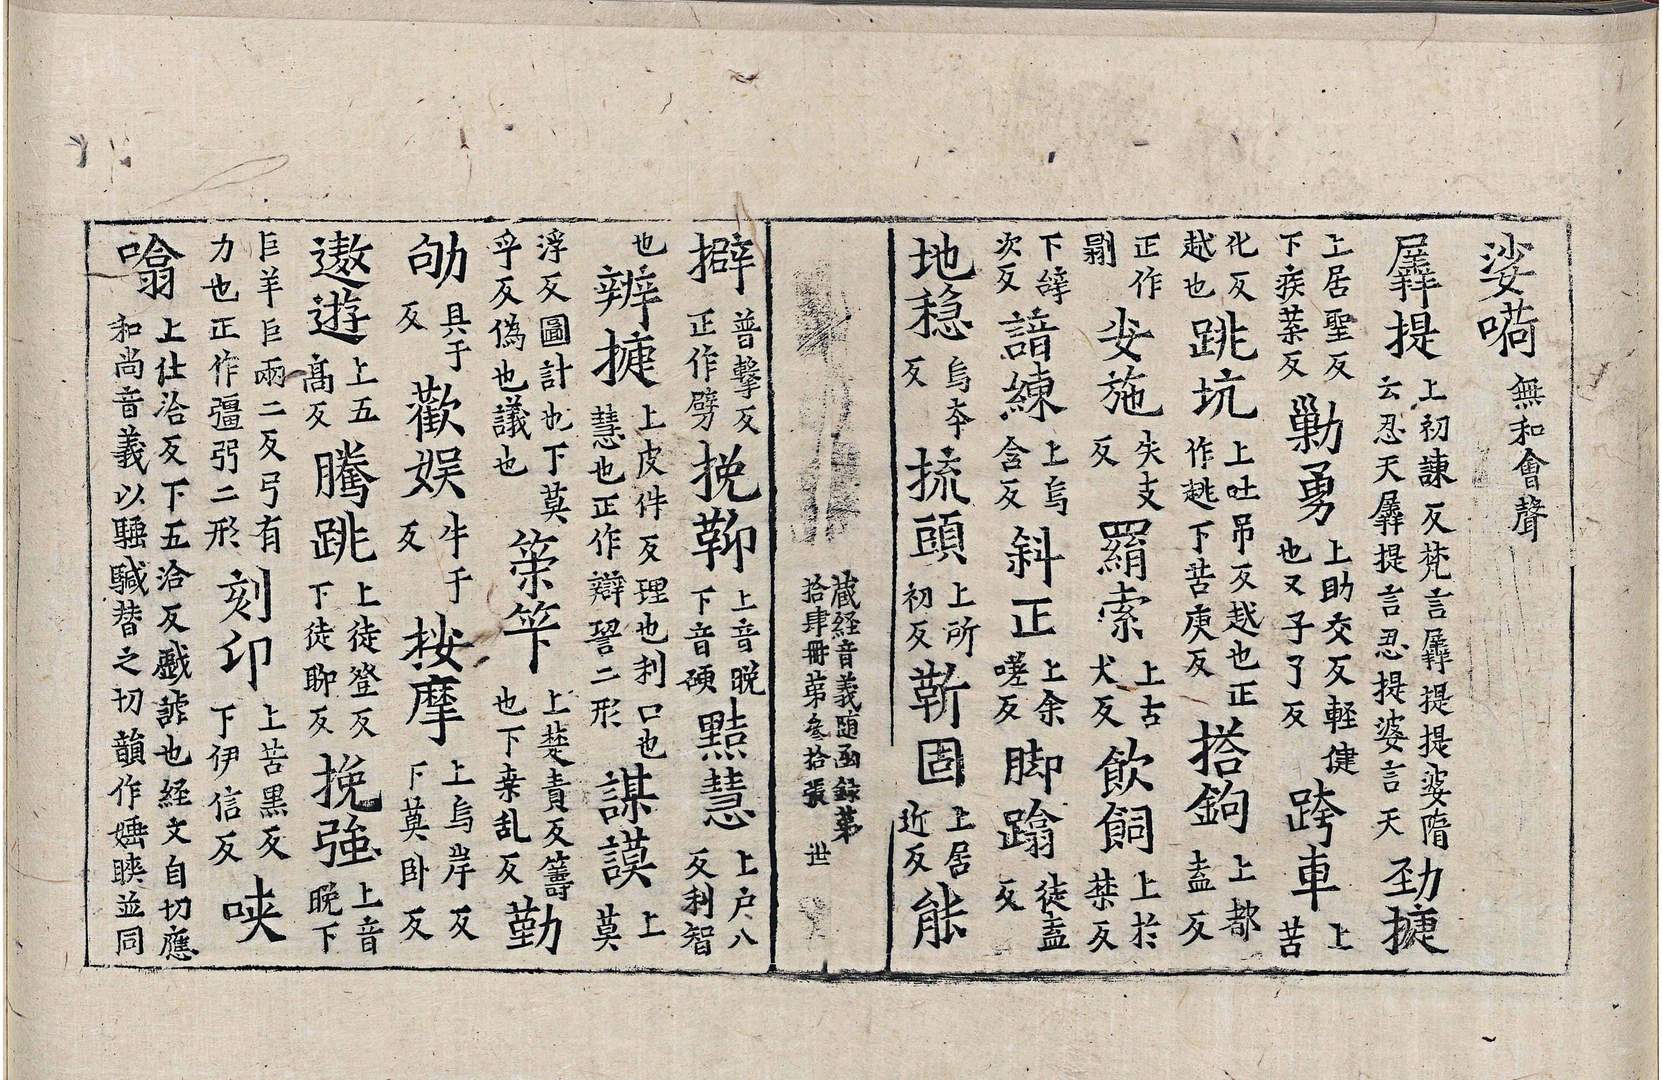 娑嗬 無和會聲
羼提 上初諫反梵言羼提提婆隋云忍天羼提言忍提婆言天 勁捷
上居聖反下疾葉反 勦勇 上助交反軽健也又子了反 跨車 上苦
化反越也 跳坑 上吐吊反越也正作趒下苦庚反 搭鉤 上都盍反
正作剔 𡚶施 失支反 羂索 上古犬反 飲飼 上於禁反
下辝次反 諳練 上烏含反 斜正 上余嗟反 脚蹹 徒盍反
地稳 烏夲反 梳頭 上所初反 靳固 上居近反 能
蔵経音義随函録苐
拾肆冊苐叁拾張 世
擗 普擊反正作劈 挽鞕 上音晚下音硬 黠慧 上户八反利智
也 辨捷 上皮件反理也利口也慧也正作辯䛒二形 謀謨 上莫
浮反圖計也下莫乎反偽也議也 筞筭 上楚責反籌也下桒乱反 勤
劬 具于反 歡娱 牛于反 按摩 上烏岸反下莫卧反
遨遊 上五髙反 騰跳 上徒登反下徒聊反 挽強 上音晚下
巨羊巨兩二反弓有力也正作彊弜二形 刻印 上苦黑反下伊信反 唊
嗋 上仕洽反下五洽反戱謔也経文自切應和尚音義以䮔䮞替之切韻作㛼䀹並同